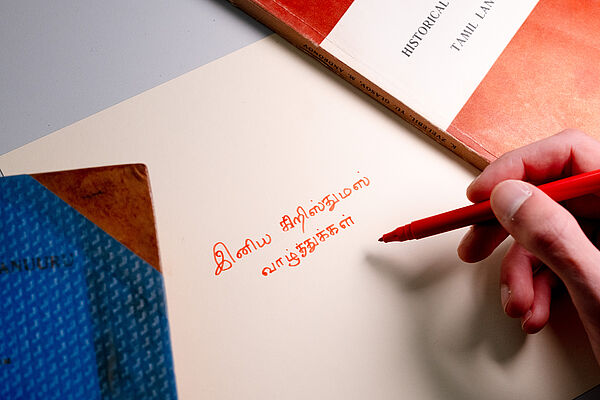 HISTORICAL
TAMIL LAN
இனிய கிறிஸ்துமஸ்
வாழ்த்துக்கள்